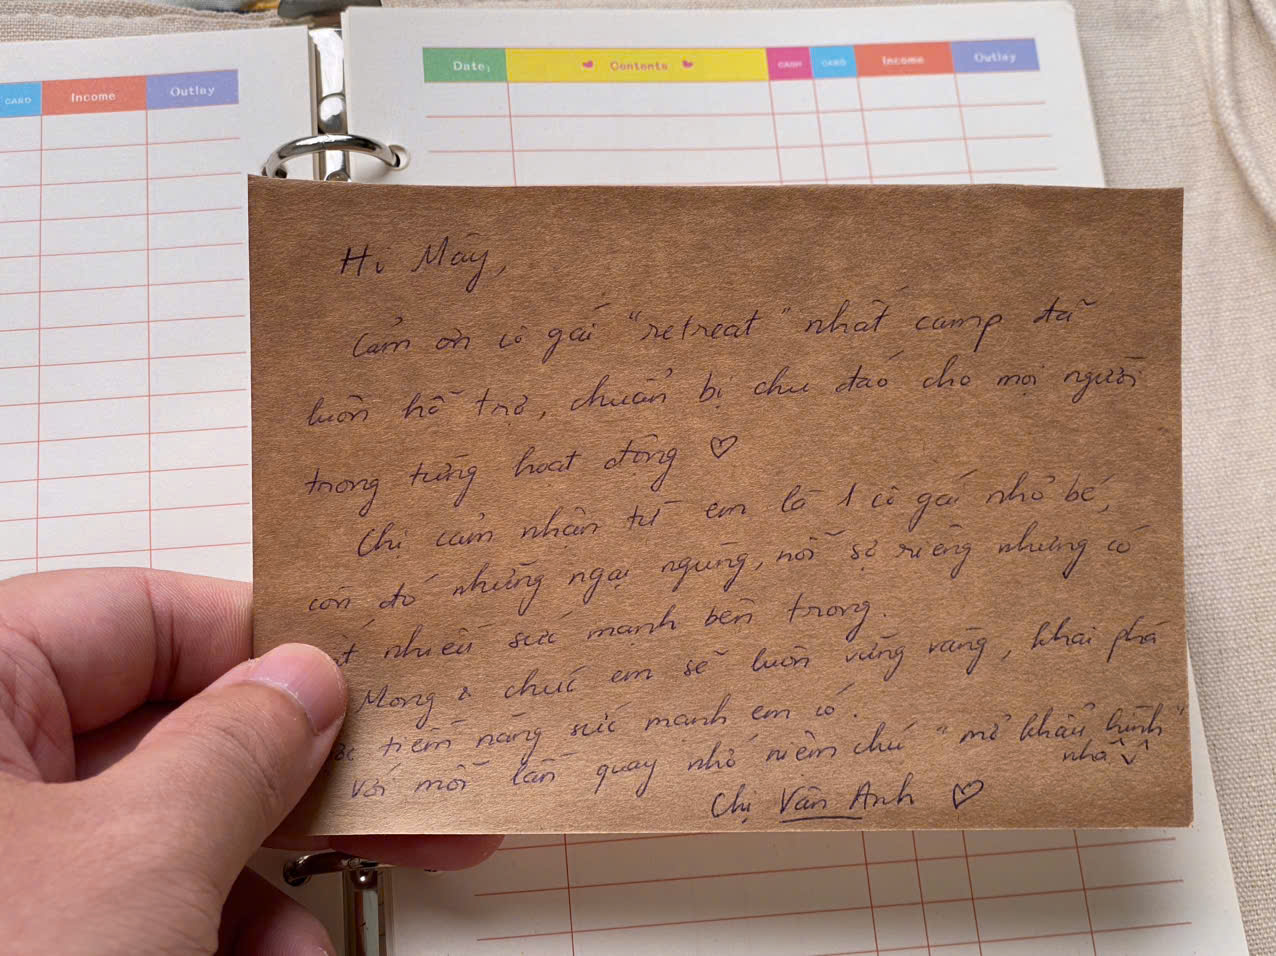 CARD Income Outlay
Date: Contents CASH CARD Income Outlay
Hi Mây,
Cảm ơn cô gái "retreat" nhất camp đã
luôn hỗ trợ, chuẩn bị chu đáo cho mọi người
trong từng hoạt động ♡
Chị cảm nhận từ em là 1 cô gái nhỏ bé,
còn đó những ngại ngùng, nỗi sợ riêng nhưng có
nhiều sức mạnh bên trong.
Mong & chúc em sẽ luôn vững vàng, khai phá
tiềm năng sức mạnh em có.
Với mỗi lần quay nhớ niệm chú "mở khẩu hình"
nhá ^^
Chị Vân Anh ♡